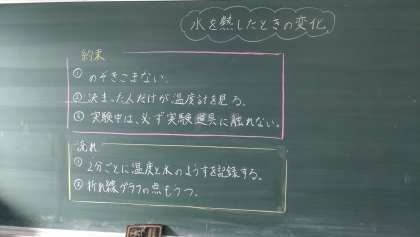 水を熱したときの変化
約束
① のぞきこまない.
② 決まった人だけが温度計を見る.
③ 実験中は、必ず実験道具に触れない。
流れ
① 2分ごとに温度と水のようすを記録する。
② 折れ線グラフの点もうつ。